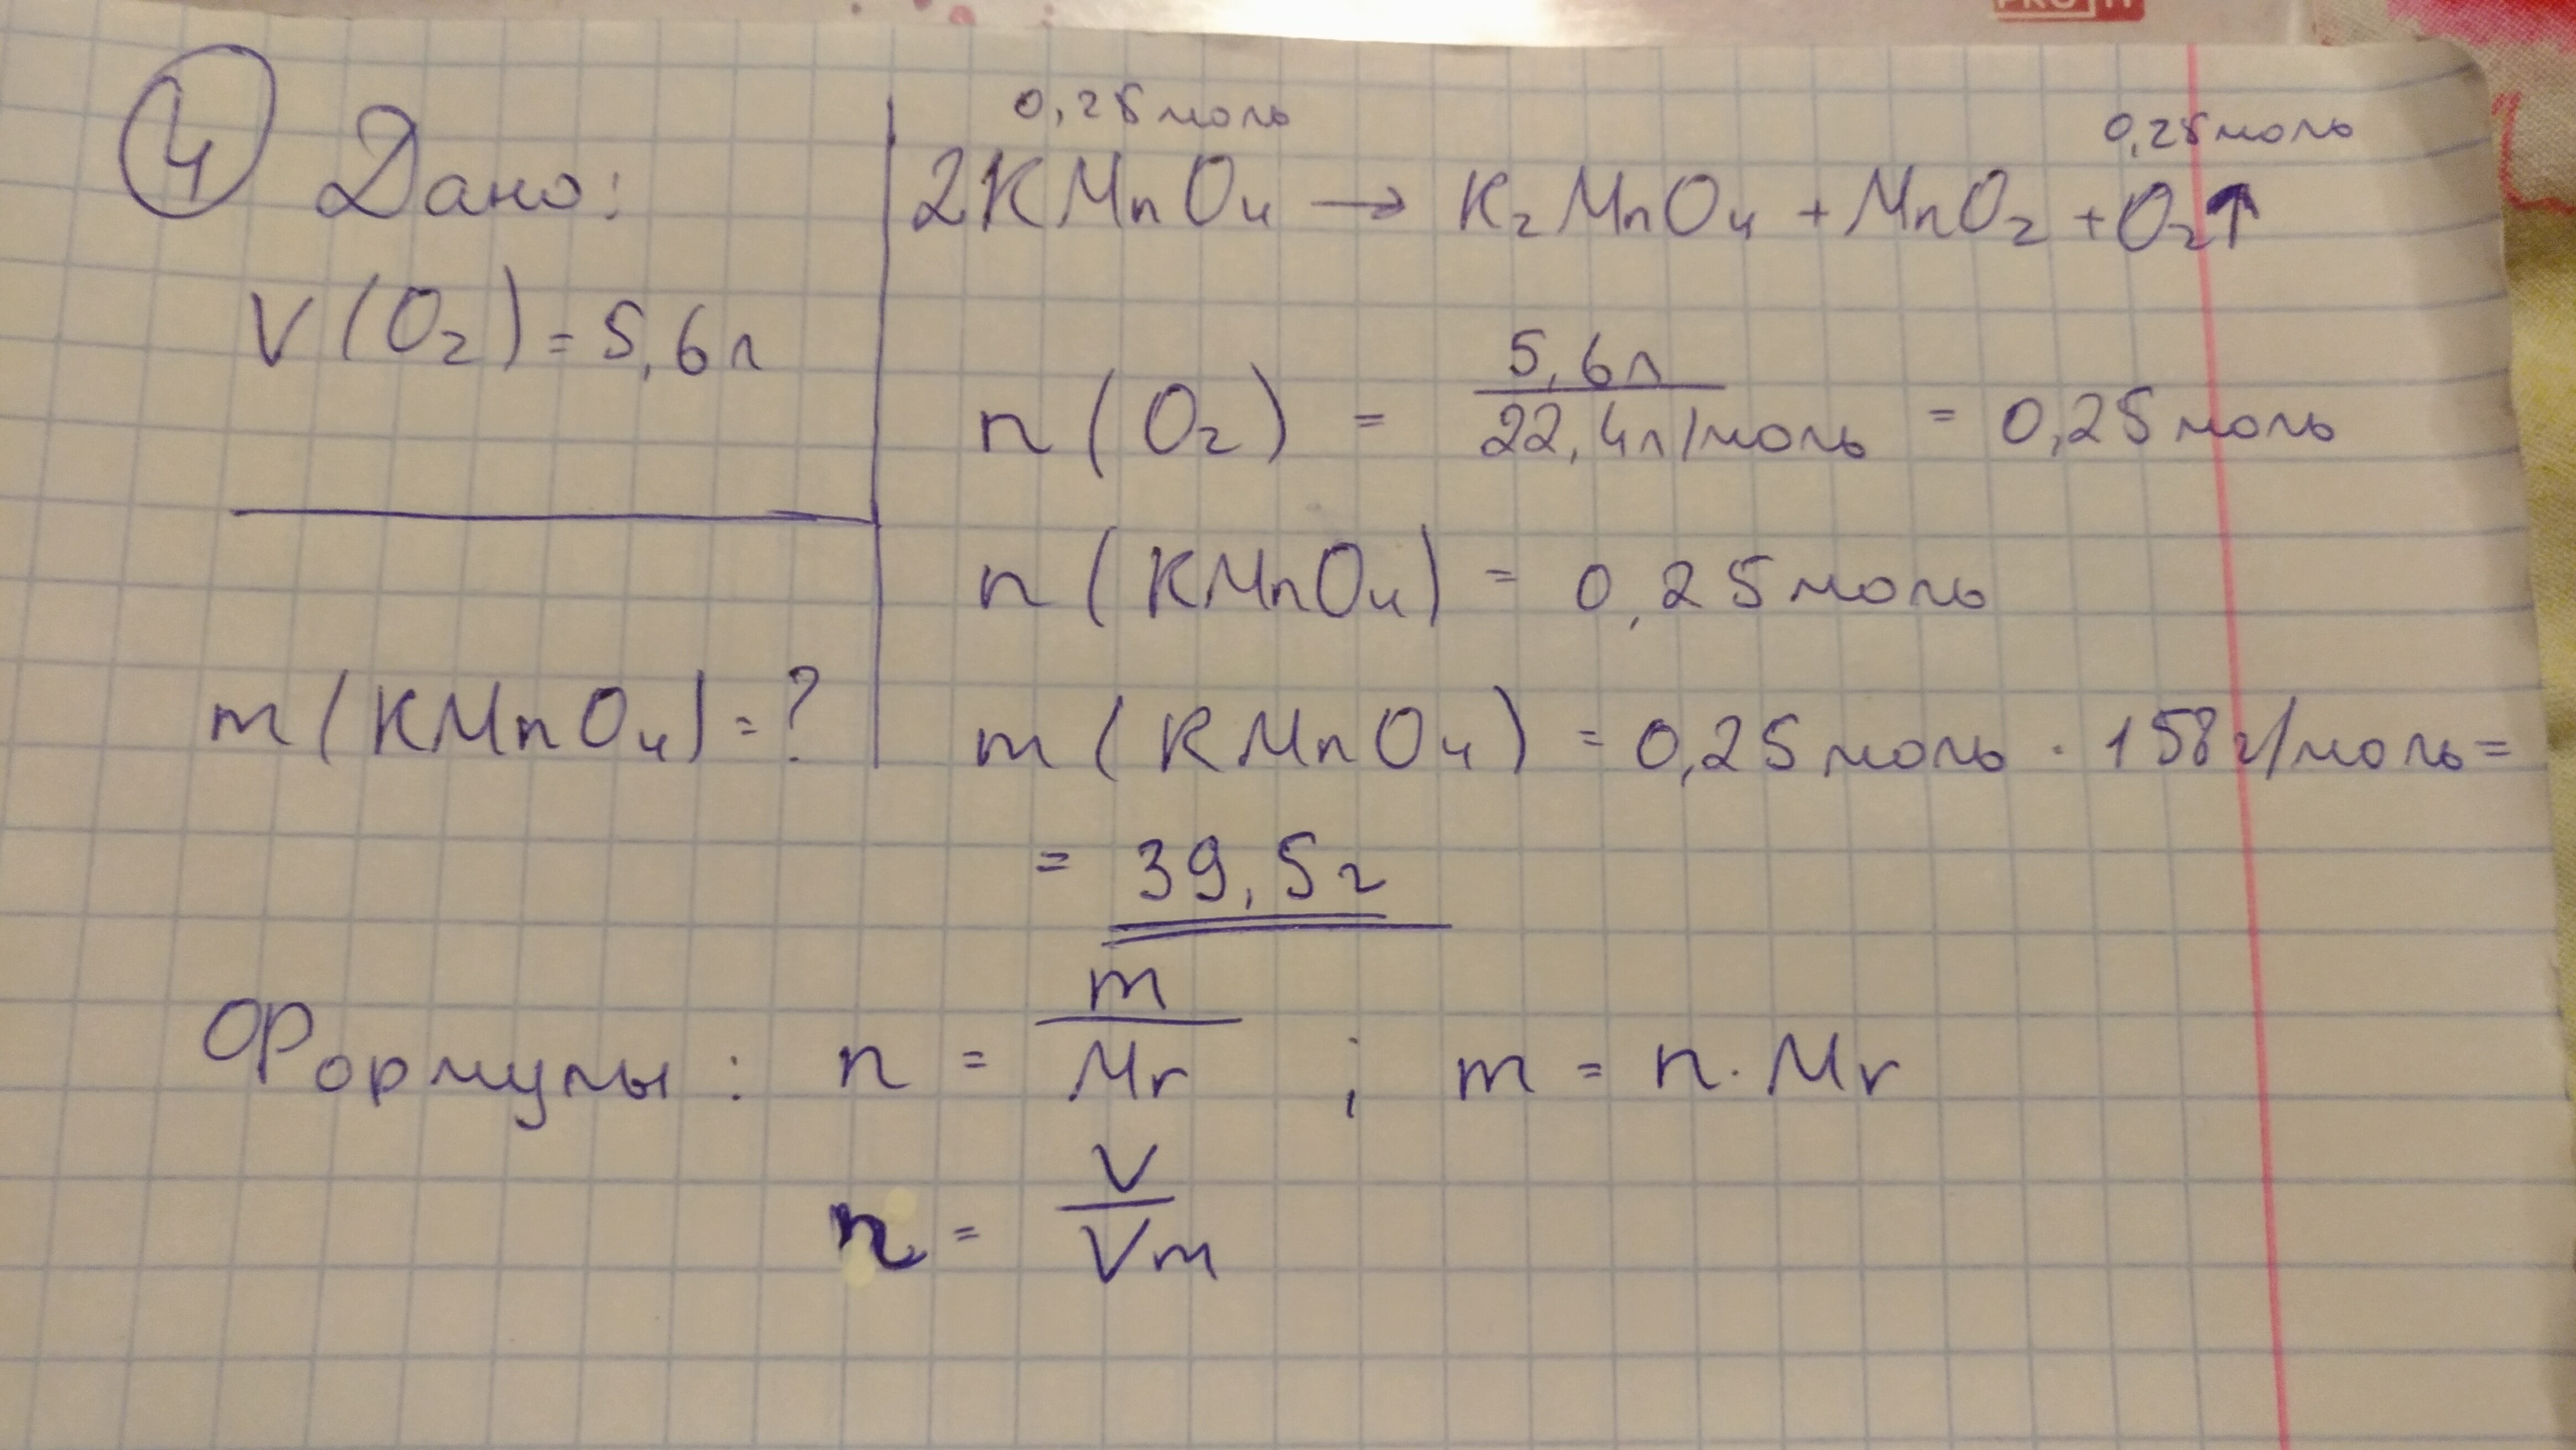 4 Дано:
V(O₂) = 5,6л
m(KMnO₄) = ?
0,25моль 0,25моль
2KMnO₄ → K₂MnO₄ + MnO₂ + O₂↑
n(O₂) = 5,6л / 22,4л/моль = 0,25моль
n(KMnO₄) = 0,25моль
m(KMnO₄) = 0,25моль · 158г/моль =
= 39,5г
Формулы: n = m / Mr ; m = n · Mr
n = V / Vm